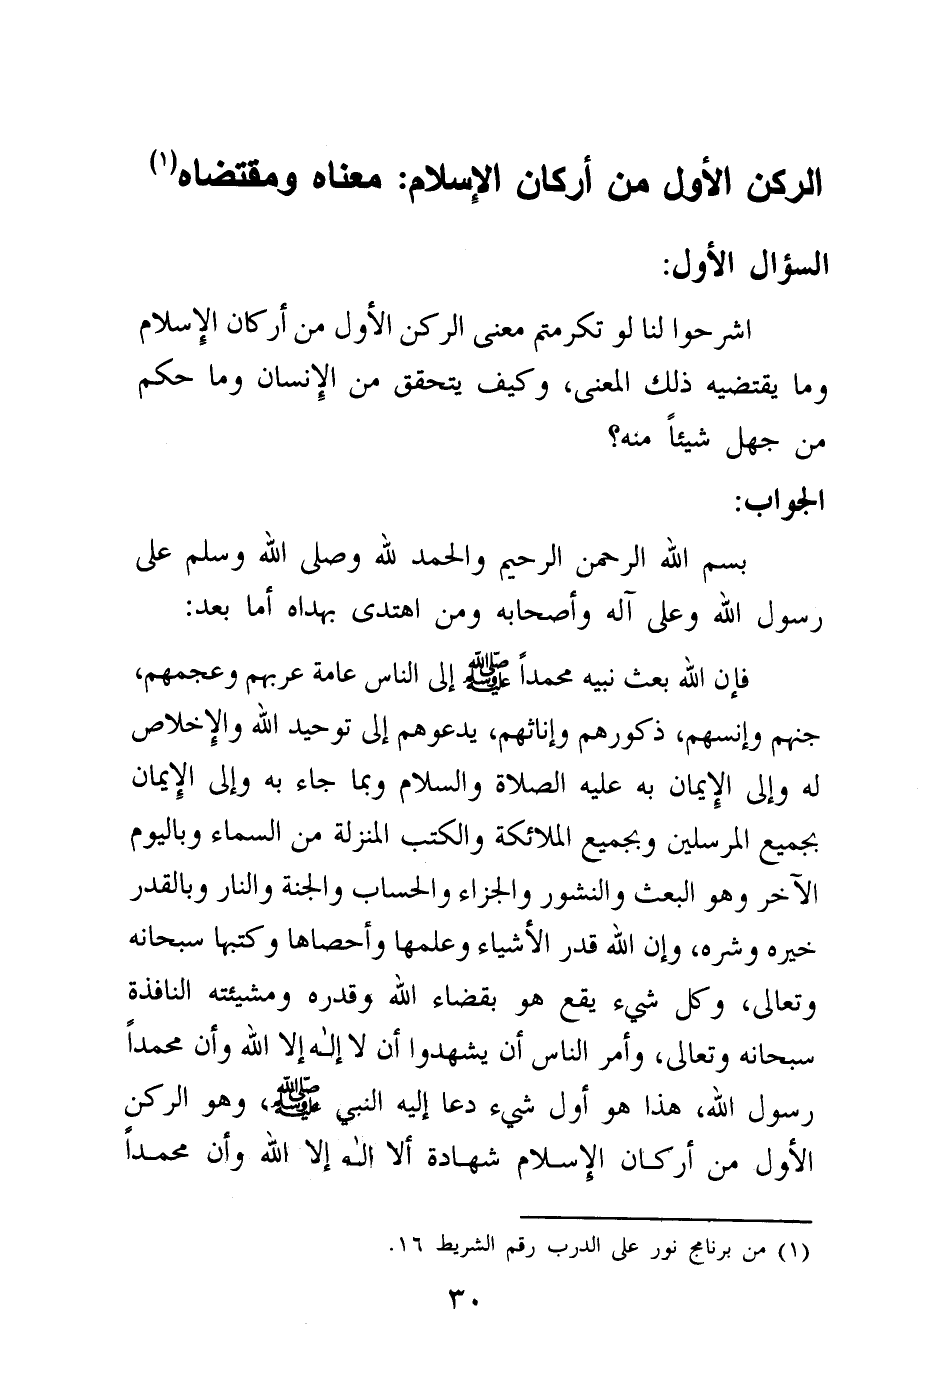 الركن الأول من أركان الإسلام: معناه ومقتضاه(١)
السؤال الأول:
اشرحوا لنا لو تكرمتم معنى الركن الأول من أركان الإسلام
وما يقتضيه ذلك المعنى، وكيف يتحقق من الإنسان وما حكم
من جهل شيئاً منه؟
الجواب:
بسم الله الرحمن الرحيم والحمد لله وصلى الله وسلم على
رسول الله وعلى آله وأصحابه ومن اهتدى بهداه أما بعد:
فإن الله بعث نبيه محمداً ﷺ إلى الناس عامة عربهم وعجمهم،
جنهم وإنسهم، ذكورهم وإناثهم، يدعوهم إلى توحيد الله والإخلاص
له وإلى الإيمان به عليه الصلاة والسلام وبما جاء به وإلى الإيمان
بجميع المرسلين وبجميع الملائكة والكتب المنزلة من السماء وباليوم
الآخر وهو البعث والنشور والجزاء والحساب والجنة والنار وبالقدر
خيره وشره، وإن الله قدر الأشياء وعلمها وأحصاها وكتبها سبحانه
وتعالى، وكل شيء يقع هو بقضاء الله وقدره ومشيئته النافذة
سبحانه وتعالى، وأمر الناس أن يشهدوا أن لا إلٰه إلا الله وأن محمداً
رسول الله، هذا هو أول شيء دعا إليه النبي ﷺ، وهو الركن
الأول من أركان الإسلام شهادة ألا الٰه إلا الله وأن محمداً
(١) من برنامج نور على الدرب رقم الشريط ١٦.
٣٠